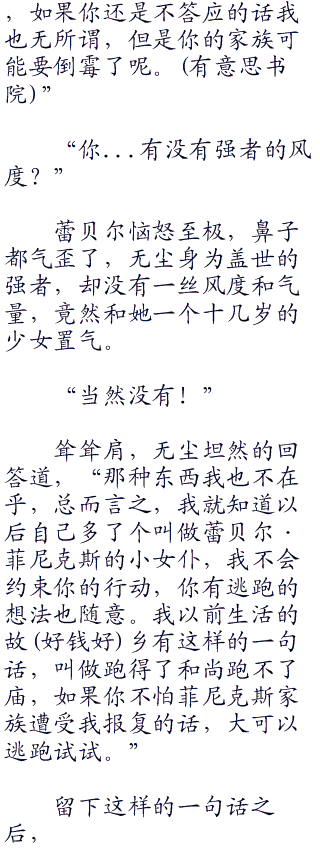 ，如果你还是不答应的话我
也无所谓，但是你的家族可
能要倒霉了呢。(有意思书
院)”
“你...有没有强者的风
度？”
蕾贝尔恼怒至极，鼻子
都气歪了，无尘身为盖世的
强者，却没有一丝风度和气
量，竟然和她一个十几岁的
少女置气。
“当然没有！”
耸耸肩，无尘坦然的回
答道，“那种东西我也不在
乎，总而言之，我就知道以
后自己多了个叫做蕾贝尔·
菲尼克斯的小女仆，我不会
约束你的行动，你有逃跑的
想法也随意。我以前生活的
故(好钱好)乡有这样的一句
话，叫做跑得了和尚跑不了
庙，如果你不怕菲尼克斯家
族遭受我报复的话，大可以
逃跑试试。”
留下这样的一句话之
后，